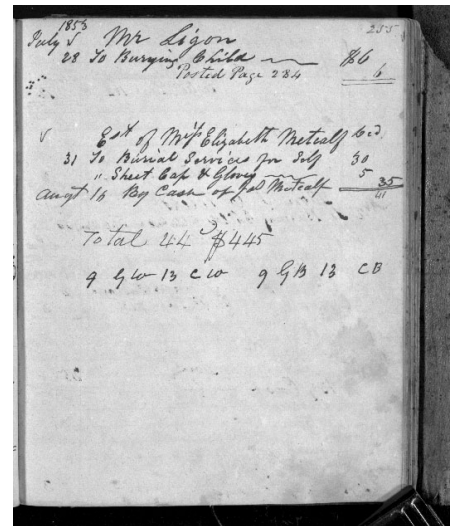 1853
255
July √ Mr Ligon
28 To Burying Child $6
Posted Page 284 6
√ Est of Miss Elizabeth Metcalf
31 To Burial Services for Self 30
" Sheet Cap & Gloves 5 35
Augt 16 By Cash of Metcalf 41
Total 44 $445
9 G W 13 C W 9 G B 13 C B